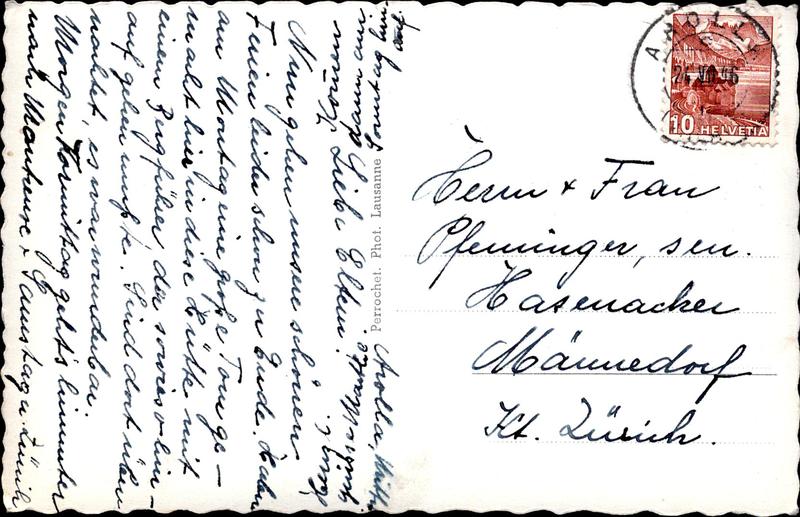 Arolla,
Liebe Eltern!
Nun gehen unsere schönen
Ferien leider schon zu Ende. Haben
am Montag eine große Tour ge-
macht hier in diese Hütte mit
einem Bergführer, der sowieso hin-
aufgehen mußte. Sind dort über-
nachtet, es war wunderbar.
Morgen Vormittag geht's hinunter
nach Montreux & Samstag n. Zürich
Perrochet. Phot. Lausanne
AROLLA
24 VII 46
10 HELVETIA
Herrn & Frau
Pfenninger, sen.
Hasenacker
Männedorf
Kt. Zürich.